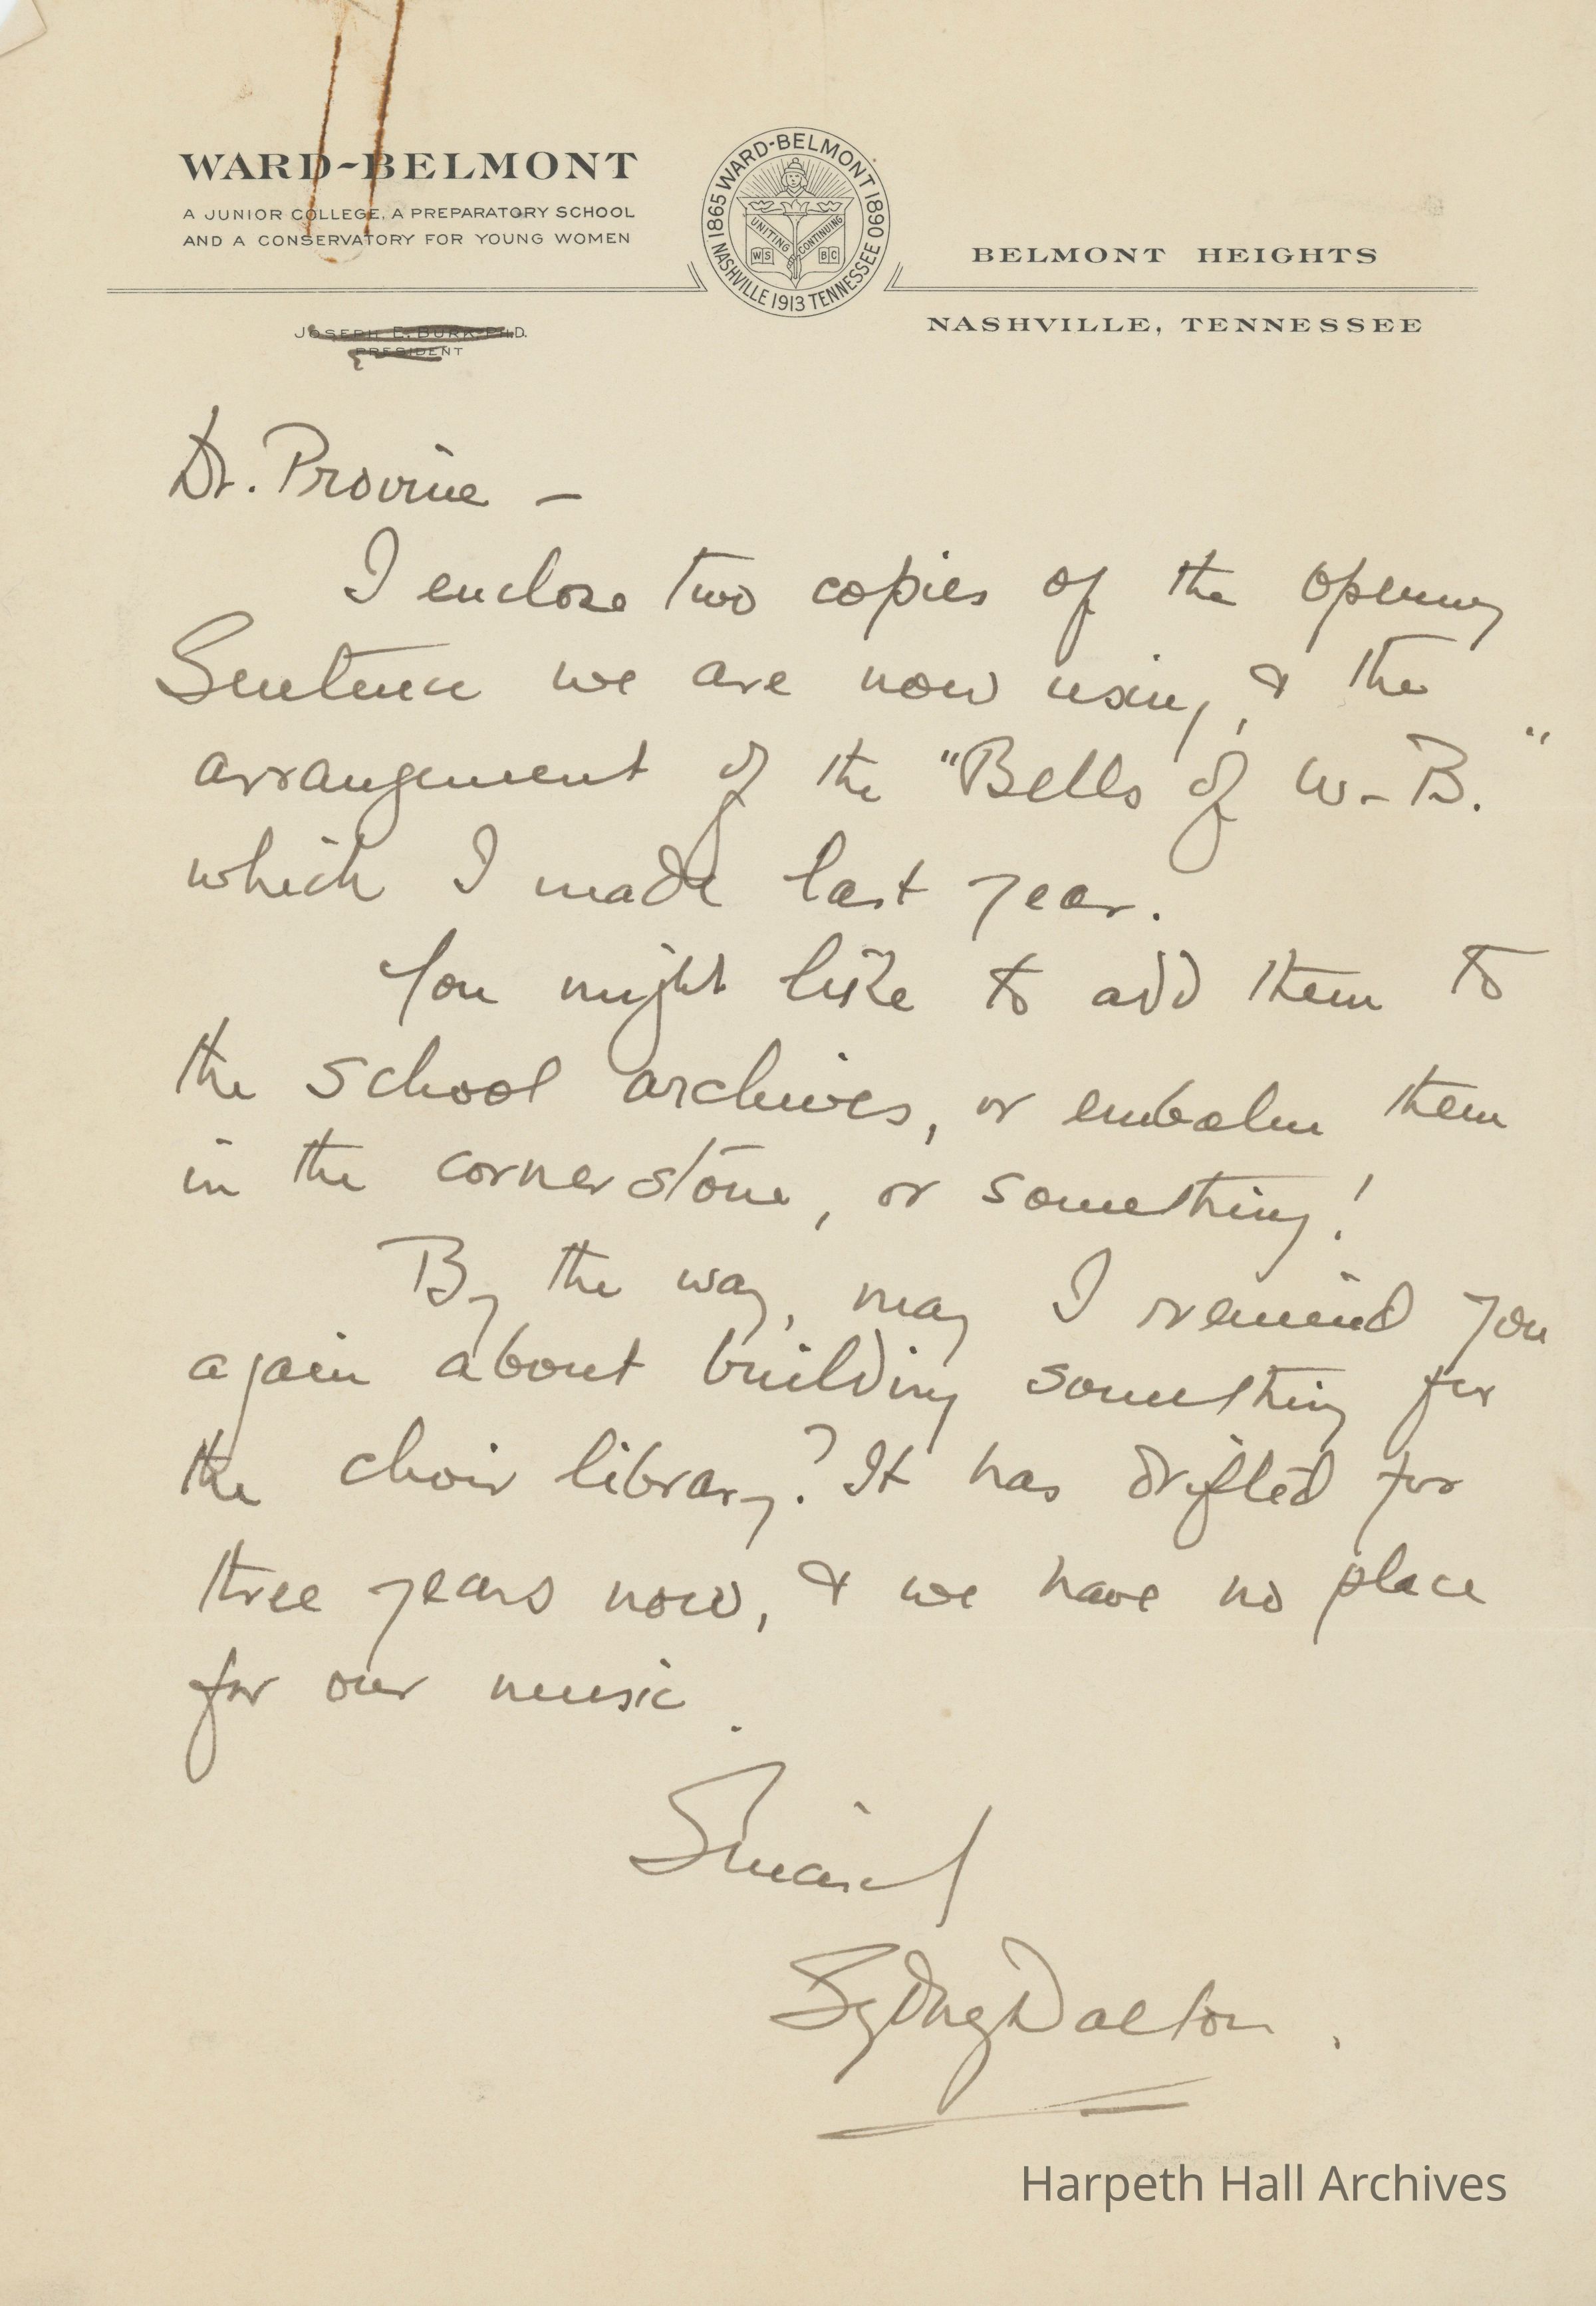 WARD-BELMONT
A JUNIOR COLLEGE, A PREPARATORY SCHOOL
AND A CONSERVATORY FOR YOUNG WOMEN
WARD-BELMONT 1865 1890 NASHVILLE 1913 TENNESSEE
UNITING CONTINUING
WS BC
BELMONT HEIGHTS
NASHVILLE, TENNESSEE
JOSEPH E. BURK PH.D.
PRESIDENT
Dr. Provine -
I enclose two copies of the opening
Sentence we are now using, & the
arrangement of the "Bells of W-B."
which I made last year.
You might like to add them to
the school archives, or embalm them
in the cornerstone, or something!
By the way, may I remind you
again about building something for
the choir library? It has drifted for
three years now, & we have no place
for our music.
Sincerely
Sydney Dalton.
Harpeth Hall Archives